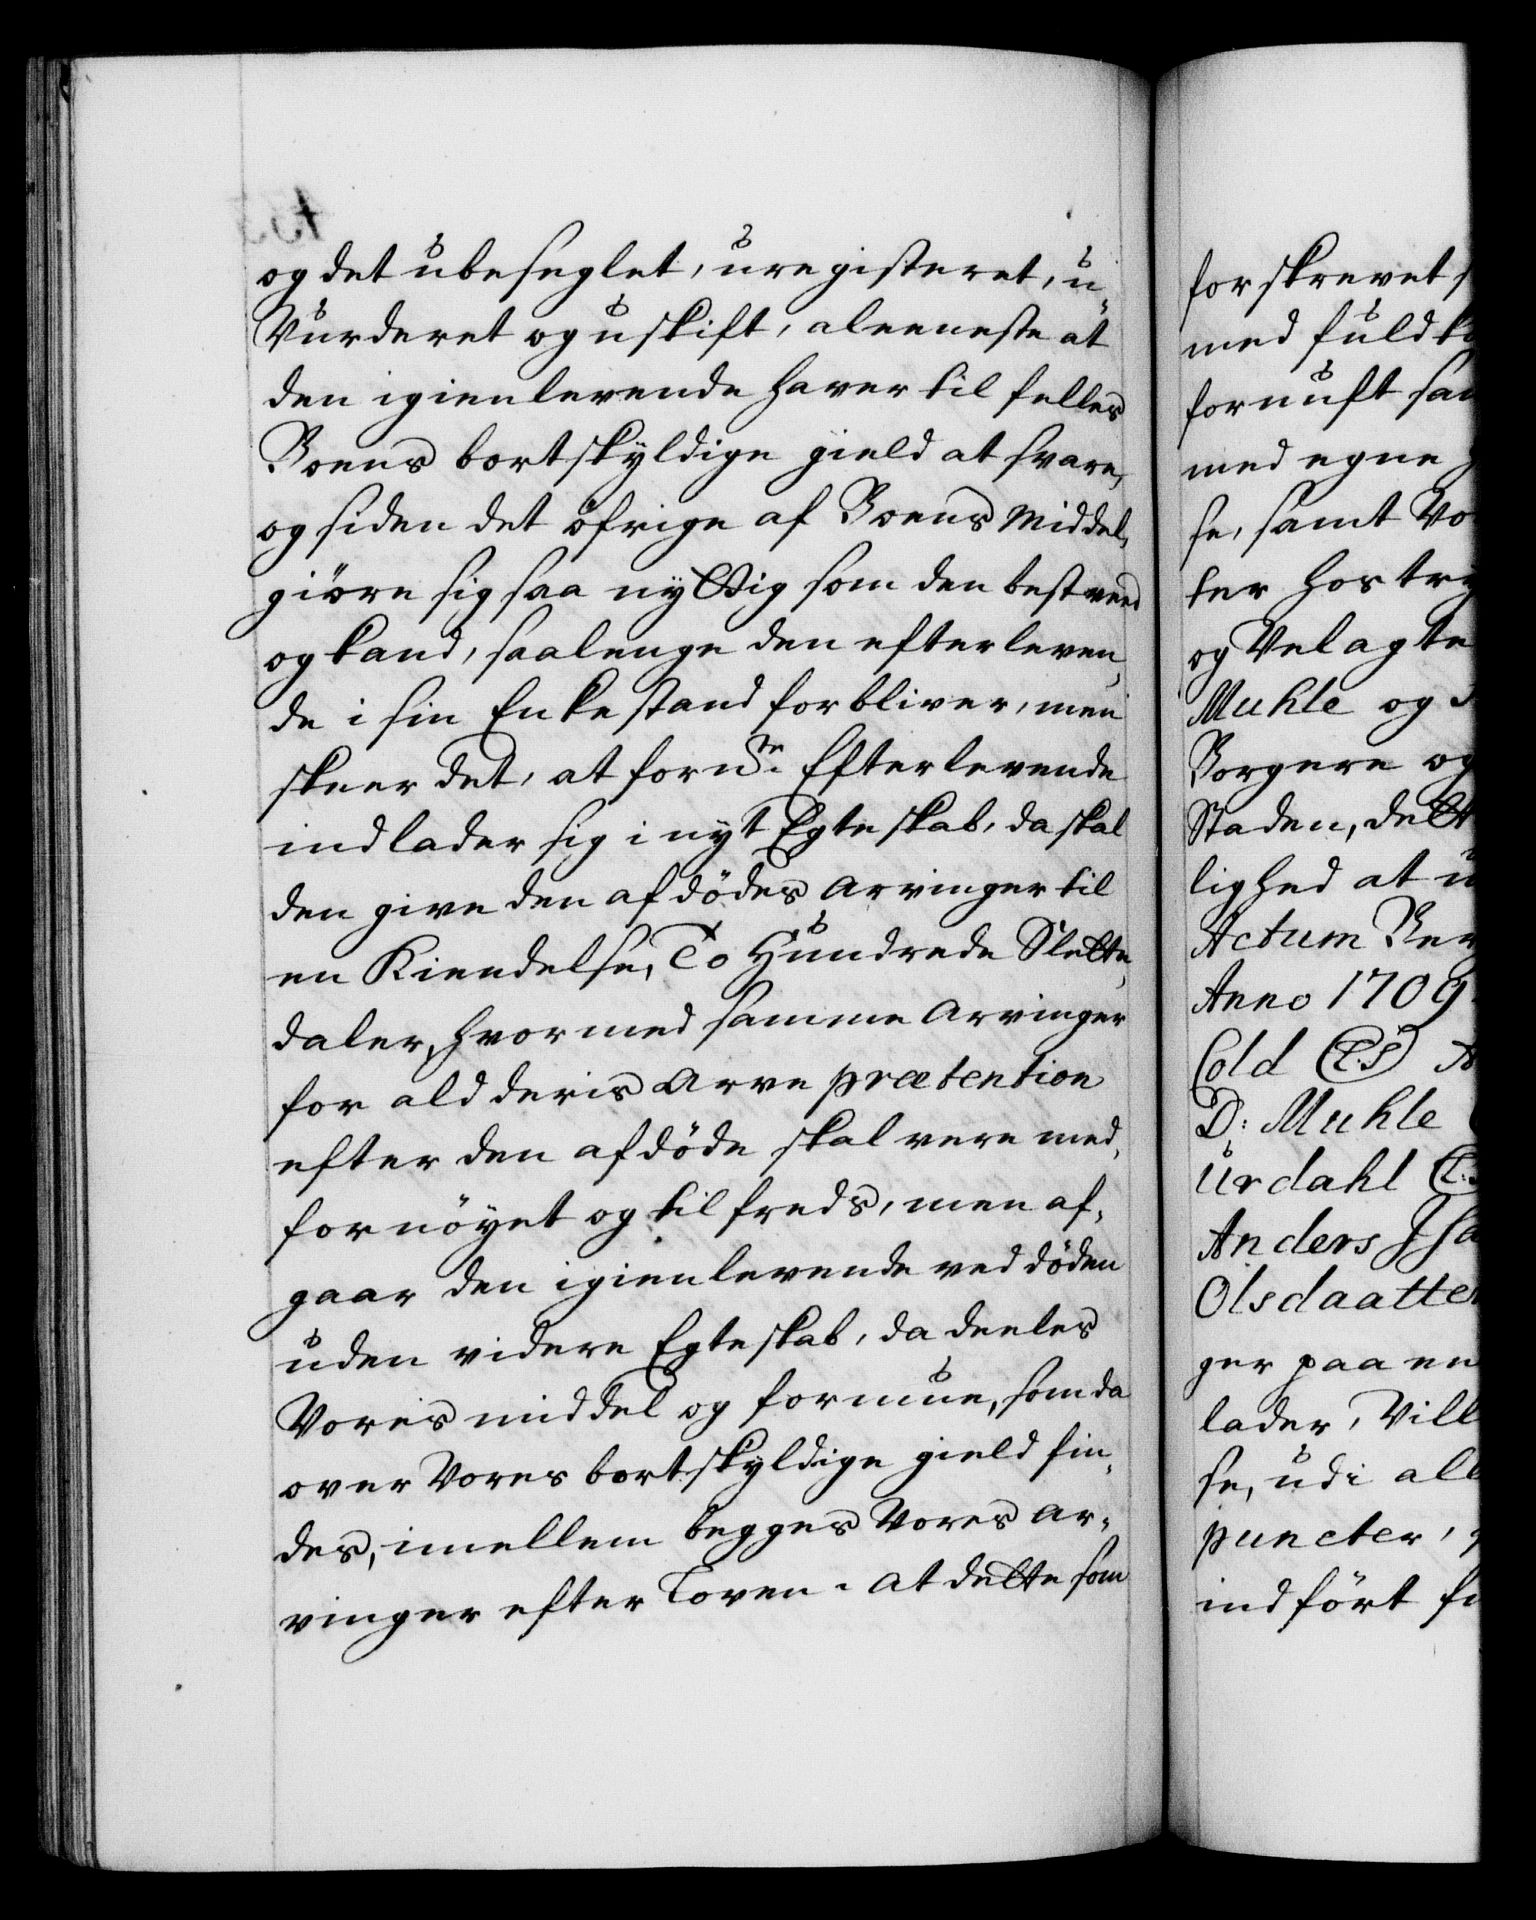 og det ubeseglet, uregisteret, u-
Vurderet og uskift, aleeneste at
den igienlevende haver til felles
Boens bortskyldige gield at svare,
og siden det öfrige af Boens Middel,
giöre sig saa nyttig som den best veed
og kand, saalenge den efterleven,,
de i sin Enkestand forbliver, men
skeer det, at fornte Efterlevende
indlader sig i nyt Egteskab, da skal
den give den afdödes Arvinger til
en Kiendelse, To Hundrede Slette,,
daler, hvormed samme Arvinger
for ald deris Arve prætention
efter den afdöde skal vere med,
fornöyet og tilfreds, men af,,
gaar den igienlevende ved döden
uden videre Egteskab, da deeles
Voris middel og formue, som da
over Vores bortskyldige gield fin,,
des, imellem begges Vores Ar,,
vinger efter Loven. At dette som
forskrevet s
med fuldko
fornuft sam
med egne
se, samt Vo
ter hos try
og Velagte
Muhle og
Borgere og
Staden, dett
lighed at u
Actum Ber
Anno 1709.
Cold (L.S)
D: Muhle
Urdahl (L.S
Anders Jsa
Olsdaatter
ger paa en
lader, Vill
se, udi all
puncter,
indfört